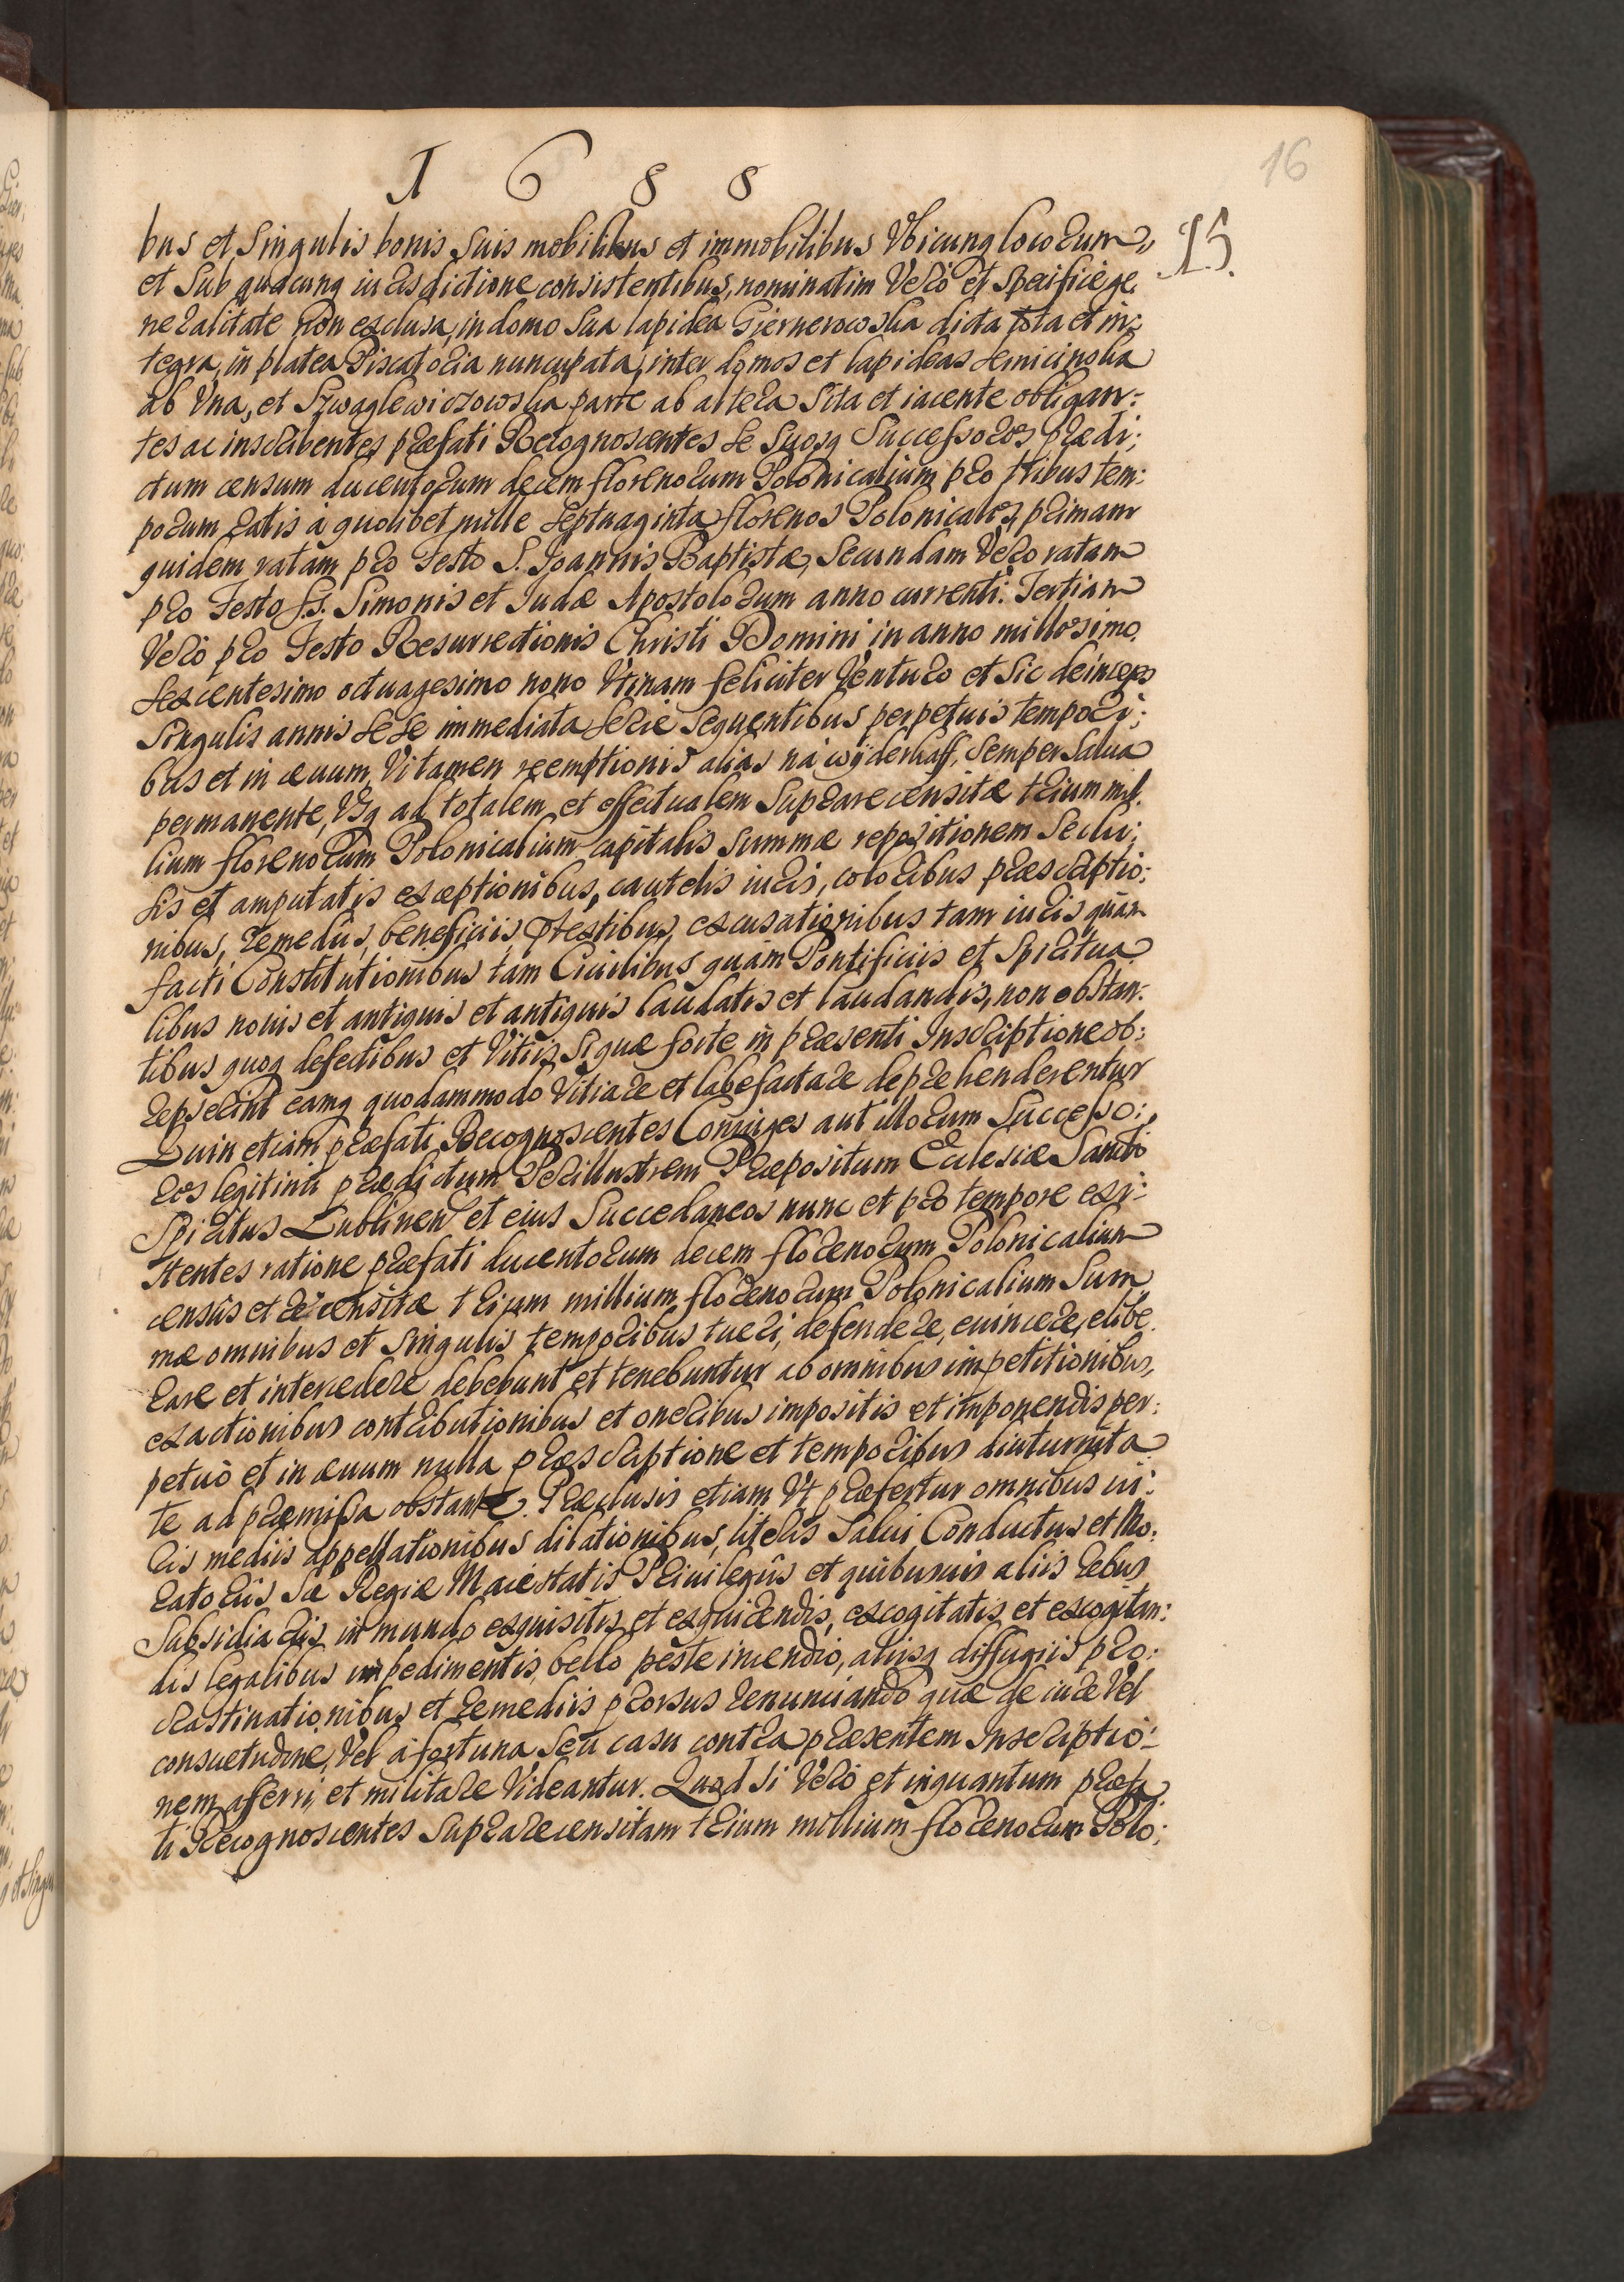 1688
16
15.
bus et Singulis bonis Suis mobilibus et immobilibus Vbicunq locorum
et Sub quacunq iurisdictione consistentibus, nominatim Verò et Specificè ge
neralitate non exclusa, in domo Sua lapidea Giernerowska dicta tota et in:
tegra, in platea Piscatoria nuncupata, inter domos et lapideas
ab Vna, et parte ab altera Sita et iacente obligan:
tes ac inscribentes præfati Recognoscentes Se Suosq Successores prædi:
ctum censum ducentorum decem florenorum Polonicalium pro tribus tem:
porum ratis à quolibet mille Septuaginta florenos Polonicales, primam
quidem ratam pro Festo S. Joannis Baptistæ, Secundam Vero ratam
pro Festo SS. Simonis et Iudæ Apostolorum anno currenti. Tertiam
Verò pro Festo Resurrectionis Christi Domini in anno millesimo
Sexcentesimo octuagesimo nono Vtinam feliciter Venturo et Sic deinceps
Singulis annis Sese immediata Serie Sequentibus perpetuis tempori:
bus et in æuum, Vi tamen reemptionis alias na wyderkaff, Semper Salua
permanente, Vsq ad totalem et effectualem Suprarecensitæ trium mil
lium florenorum Polonicalium capitalis Summæ repositionem Seclu:
sis et amputatis exceptionibus, cautelis iuris, coloribus præscriptio:
nibus, remediis, beneficiis, prætextibus, excusationibus tam iuris quàm
facti Constitutionibus tam Ciuilibus quàm Pontificiis et Spiritua
libus nouis et antiquis et antiquis laudatis et laudandis, non obstan:
tibus quoq defectibus et Vitiis, Si quæ forte in præsenti Inscriptione ob:
repserint eamq quodammodo Vitiare et labefactare deprehenderentur
Quin etiam præfati Recognoscentes Coniuges aut illorum Successo:
res legitimi prædictum Perillustrem Præpositum Ecclesiæ Sancti
Spiritus Lublinen et eius Succedaneos nunc et pro tempore exi:
stentes ratione præfati ducentorum decem florenorum Polonicalium
censûs et recensitæ trium millium florenorum Polonicalium Sum
mæ omnibus et Singulis temporibus tueri, defendere, euincere, elibe
rare et intercedere debebunt et tenebuntur ab omnibus impetitionibus,
exactionibus contributionibus et oneribus impositis et imponendis per:
petuò et in æuum nulla præscriptione et temporibus diuturnita
te ad præmissa obstante. Præclusis etiam Vt præfertur omnibus iu:
ris mediis appellationibus dilationibus, literis Salui Conductus et Mo:
ratoriis Sæ Regiæ Maiestatis Priuilegiis et quibusuis aliis rebus
Subsidiariis in mundo exquisitis et exquirendis, excogitatis et excogitan:
dis legalibus impedimentis, bello peste incendio, aliisq diffugiis pro:
crastinationibus et remediis prorsus renunciando quæ de iure Vel
consuetudine, Vel à fortuna Seu casu contra præsentem Inscriptio:
nem afferri et militare Videantur. Quod si Verò et inquantum præfa
ti Recognoscentes Suprarecensitam trium millium florenorum Polo: